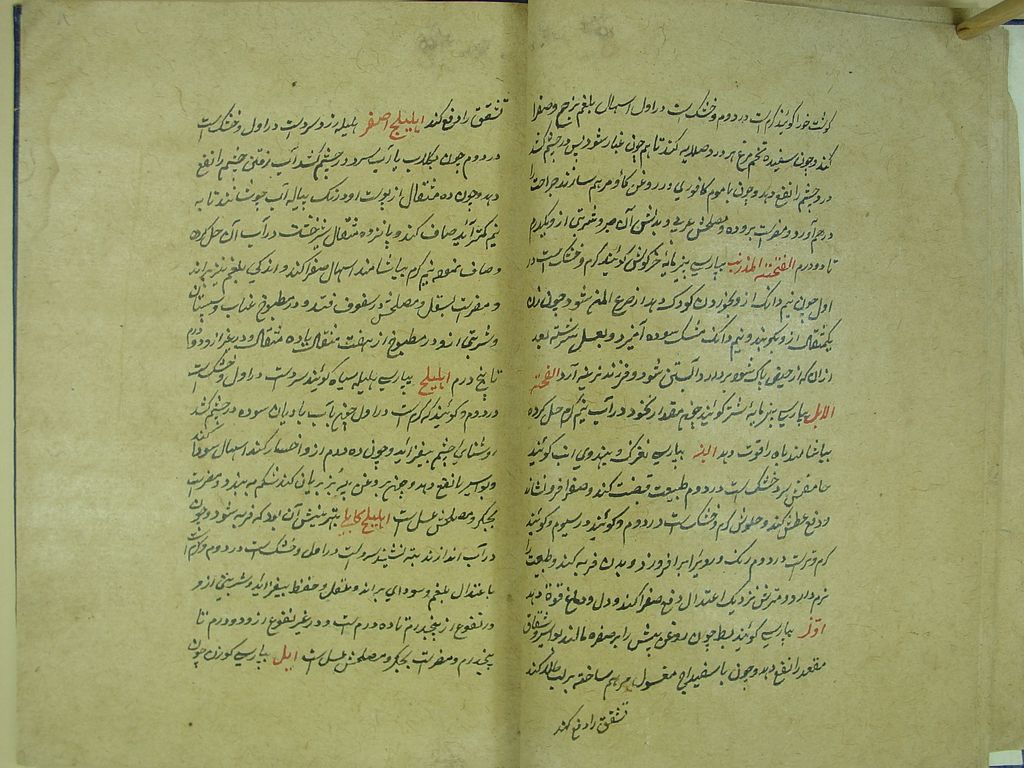 کوشت خورا کویند کرم است در دوم و خشک است در اول اسهال بلغم بزج و صفرا
کند و چون سفیده تخم مرغ بر و صلایه کنند تا هم چون غبار شود پس در چشم کنند
درد چشم را نفع دهد و چون با موم کافوری و در روغن کاو مرهم سازند جراحت را
درهم آورد و مضرت برو ده و مصلحش عربی و بدلش آن صبر و شربتی از و یکدرم
تا دو درم الفتحته المذرنب بپارسی پنیر مایه خرکوش کویند کرم و خشک است در
اول چون نیم دانک از و بخوردن کودک دهد از صرع المن شود و چون زن
یکمثقال از و بکوبد و نیم دانک مشک سوده آمیزد و بعسل سرشته بعد
ازان که از حیض پاک شود بردارد آبستن شود و فرزند نرینه آرد الفتحته
الابل بپارسی پنیر مایه شتر کویند چون مقدار نخود در آب نیم کرم حل کرده
بیاشامند باه را قوت دهد بپارسی نغزک و بهندوی انب کویند
خامش سرد خشک است در دوم طبیعت قبض کند و صفرا فرو نشاند
و دفع عطش کند و حلوش کرم و خشک است در دوم و کویند در سیوم و کویند
کرم و تر است در دوم رنک و روی را برافروزد و بدن فربه کند و طبیعت را
نرم دارد و مترش نزدیک اعتدال دفع صفرا کند و دل و دماغ قوة دهد
اوز بپارسی کویند بط چون روغن پیش را بر صفره مالند بواسیر و شقاق
مقعد را نفع دهد و چون با سفیداج مغسول مرهم ساخته بر لب طلا کند
تشقق را دفع کند
تشقق را دفع کند اهلیلج اصفر هلیله زرد سرد است در اول و خشک است
در دوم چون بکلاب یا آب سرد در چشم کشد آب رفتن چشم را نفع
دهد و چون ده مثقال از پوست او در یک پیاله آب جوشانند تا به
نیم کمتر آید صاف کند و پانزده مثقال شیر خشت در آب آن حل کرده
و صاف نموده نیم کرم بیاشامند اسهال صفرا کند و اندکی بلغم نیز براند
و مضرت بسفل و مصلحش در سفوف قند و در مطبوخ عناب و سپستان
و شربتی از و در مطبوخ از هفت مثقال تا ده مثقال و در غیر از دو درم
تا پنج درم اهلیلج بپارسی هلیله سیاه کویند سرد است در اول و خشک است
در دوم و کویند که کرم است در اول چون با آب بادیان سوده در چشم کشد
روشنای چشم بیفزاید و چون ده درم از و اختیار کنند اسهال سودا کند
و بواسیر را نفع دهد و چون بروغن بریان کند شکم به بندد و مضرت
بجکر و مصلحش عسل است اهلیلج کابلی بهترینش آن بود که فربه شود و چون
در آب اندازند به ته نشیند سرد است در اول و خشک است در دوم و کرم است
باعتدال بلغم و سودای براند و عقل و حفظ بیفزاید و شربتی از و
در نقوع از پنجدرم تا ده درم است و در غیر نقوع از دو درم تا
پنجدرم و مضرت بجکر و مصلحش عسل است ایل بپارسی کوزن چون